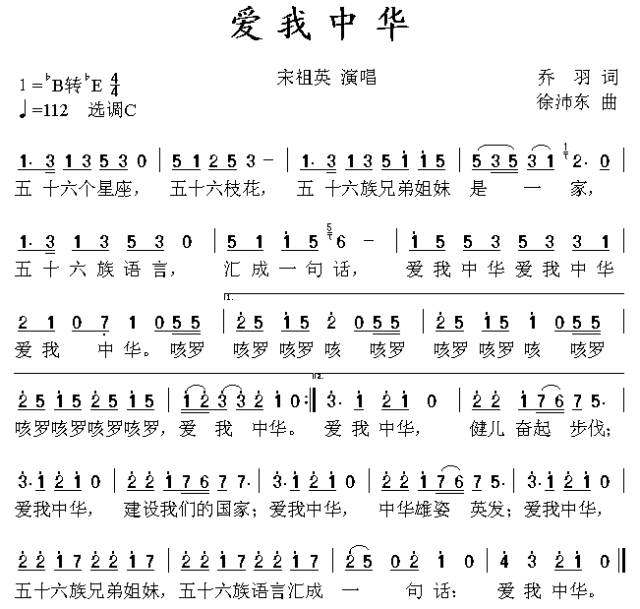 爱我中华
1=♭B转♭E 4/4 宋祖英 演唱 乔 羽 词
♩=112 选调C 徐沛东 曲
1· 3 1 3 5 3 0 | 5 1 2 5 3 – | 1· 3 1 3 5 1 1 5 | 5 3 5 3 1 2· 0 |
五 十六个星座， 五十六枝花， 五 十六族兄弟姐妹 是 一 家，
1· 3 1 3 5 3 0 | 5 1 1 5 6 – | 1 5 5 3 5 3 3 1 |
五 十 六 族 语 言， 汇 成 一 句 话， 爱 我 中 华 爱 我 中 华
1.
2 1 0 7 1 0 5 5 | 2 5 1 5 1 0 5 5 | 2 5 1 5 1 0 5 5 |
爱 我 中 华。 咳罗 咳罗 咳罗 咳 咳罗 咳罗 咳罗 咳 咳罗
2.
2 5 1 5 2 5 1 5 | 1 2 3 3 2 1 0 :‖ 3· 1 2 1 0 | 2 2 1 7 6 7 5· |
咳罗咳罗咳罗咳罗， 爱 我 中华。 爱 我 中华， 健儿 奋起 步伐；
3· 1 2 1 0 | 2 2 1 7 6 7 7· | 3· 1 2 1 0 | 2 2 1 7 6 5 7· | 3· 1 2 1 0 |
爱我中华， 建设我们的国家；爱我中华， 中华雄姿 英发；爱我中华，
2 2 2 1 2 2 1 7 | 2 2 2 1 2 2 1 7 | 2 5 0 2 1 0 | 4 3 2 1 0 ‖
五十六族兄弟姐妹，五十六族语言汇成 一 句话： 爱 我 中华。